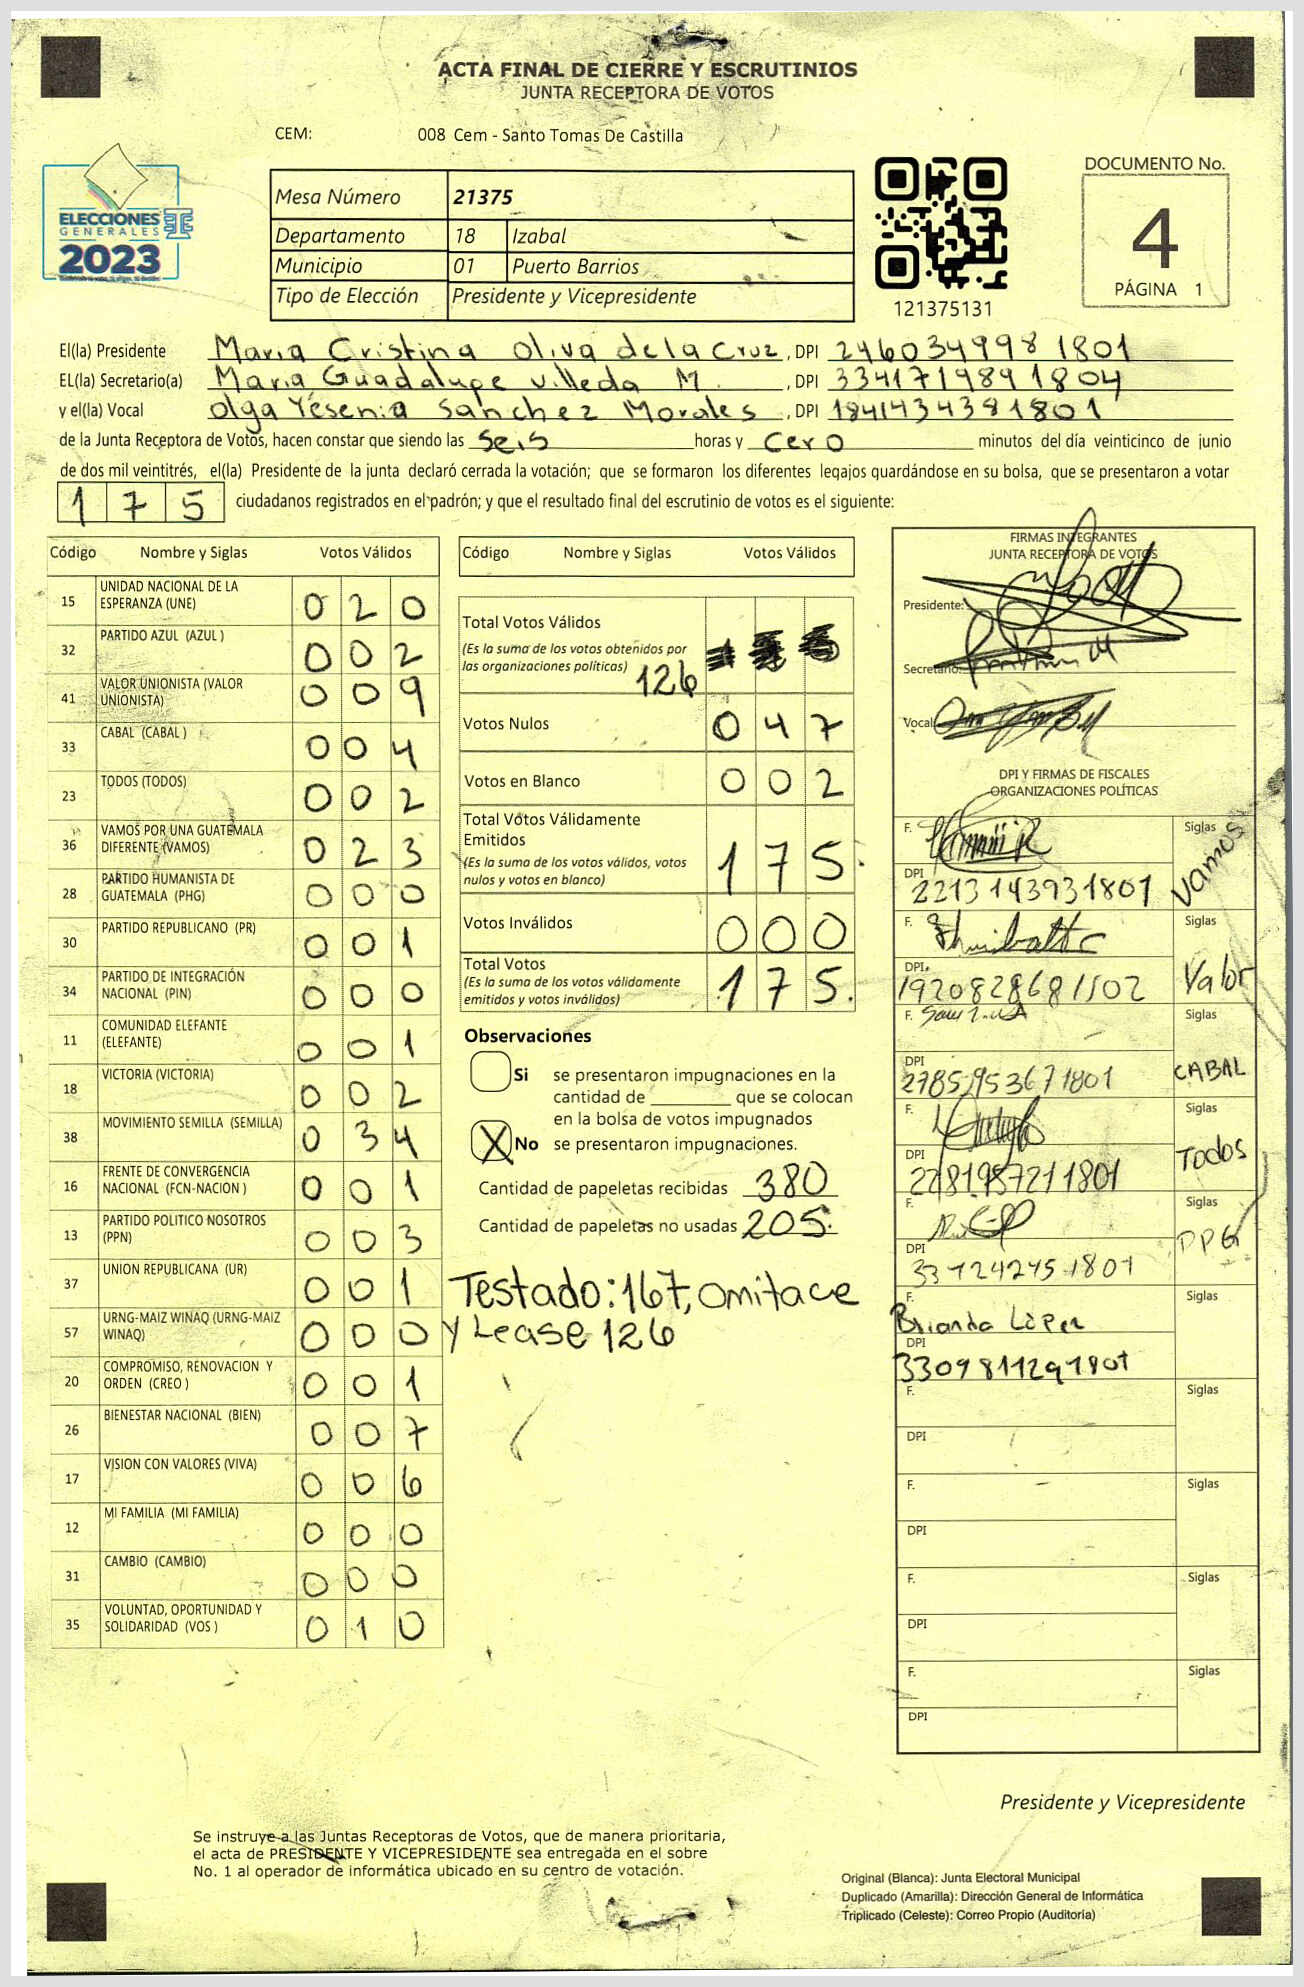 ACTA FINAL DE CIERRE Y ESCRUTINIOS
JUNTA RECEPTORA DE VOTOS
CEM: 008 Cem - Santo Tomas De Castilla
ELECCIONES
GENERALES
2023
Mesa Número 21375
Departamento 18 Izabal
Municipio 01 Puerto Barrios
Tipo de Elección Presidente y Vicepresidente
121375131
DOCUMENTO No.
4
PÁGINA 1
El(la) Presidente Maria Cristina Oliva de la Cruz, DPI 2460349981801
EL(la) Secretario(a) Maria Guadalupe Villeda M. , DPI 3341719891804
y el(la) Vocal Olga Yésenia Sanchez Morales , DPI 1841434381801
de la Junta Receptora de Votos, hacen constar que siendo las seis horas y cero minutos del día veinticinco de junio
de dos mil veintitrés, el(la) Presidente de la junta declaró cerrada la votación; que se formaron los diferentes legajos guardándose en su bolsa, que se presentaron a votar
175 ciudadanos registrados en el padrón; y que el resultado final del escrutinio de votos es el siguiente:
Código Nombre y Siglas Votos Válidos
15 UNIDAD NACIONAL DE LA ESPERANZA (UNE) 0 2 0
32 PARTIDO AZUL (AZUL ) 0 0 2
41 VALOR UNIONISTA (VALOR UNIONISTA) 0 0 9
33 CABAL (CABAL ) 0 0 4
23 TODOS (TODOS) 0 0 2
36 VAMOS POR UNA GUATEMALA DIFERENTE (VAMOS) 0 2 3
28 PARTIDO HUMANISTA DE GUATEMALA (PHG) 0 0 0
30 PARTIDO REPUBLICANO (PR) 0 0 1
34 PARTIDO DE INTEGRACIÓN NACIONAL (PIN) 0 0 0
11 COMUNIDAD ELEFANTE (ELEFANTE) 0 0 1
18 VICTORIA (VICTORIA) 0 0 2
38 MOVIMIENTO SEMILLA (SEMILLA) 0 3 4
16 FRENTE DE CONVERGENCIA NACIONAL (FCN-NACION ) 0 0 1
13 PARTIDO POLITICO NOSOTROS (PPN) 0 0 3
37 UNION REPUBLICANA (UR) 0 0 1
57 URNG-MAIZ WINAQ (URNG-MAIZ WINAQ) 0 0 0
20 COMPROMISO, RENOVACION Y ORDEN (CREO ) 0 0 1
26 BIENESTAR NACIONAL (BIEN) 0 0 7
17 VISION CON VALORES (VIVA) 0 0 6
12 MI FAMILIA (MI FAMILIA) 0 0 0
31 CAMBIO (CAMBIO) 0 0 0
35 VOLUNTAD, OPORTUNIDAD Y SOLIDARIDAD (VOS ) 0 1 0
Código Nombre y Siglas Votos Válidos
Total Votos Válidos
(Es la suma de los votos obtenidos por
las organizaciones políticas) 126
Votos Nulos 0 4 7
Votos en Blanco 0 0 2
Total Votos Válidamente
Emitidos
(Es la suma de los votos válidos, votos
nulos y votos en blanco) 1 7 5.
Votos Inválidos 0 0 0
Total Votos
(Es la suma de los votos válidamente
emitidos y votos inválidos) 1 7 5.
Observaciones
Si se presentaron impugnaciones en la
cantidad de ________ que se colocan
en la bolsa de votos impugnados
X No se presentaron impugnaciones.
Cantidad de papeletas recibidas 380
Cantidad de papeletas no usadas 205.
Testado: 167, omitace
y Lease 126
FIRMAS INTEGRANTES
JUNTA RECEPTORA DE VOTOS
Presidente:
Secretario:
Vocal
DPI Y FIRMAS DE FISCALES
ORGANIZACIONES POLÍTICAS
F. Siglas Vamos
DPI 2213143931801
F. Siglas Valor
DPI. 1920828681502
F. Siglas CABAL
DPI 2785295367 1801
F. Siglas Todos
DPI 2281957211801
F. Siglas PPG
DPI
F. Brianda López Siglas
DPI 3309811291801
F. Siglas
DPI
F. Siglas
DPI
F. Siglas
DPI
F. Siglas
DPI
Presidente y Vicepresidente
Se instruye a las Juntas Receptoras de Votos, que de manera prioritaria,
el acta de PRESIDENTE Y VICEPRESIDENTE sea entregada en el sobre
No. 1 al operador de informática ubicado en su centro de votación.
Original (Blanca): Junta Electoral Municipal
Duplicado (Amarilla): Dirección General de Informática
Triplicado (Celeste): Correo Propio (Auditoría)